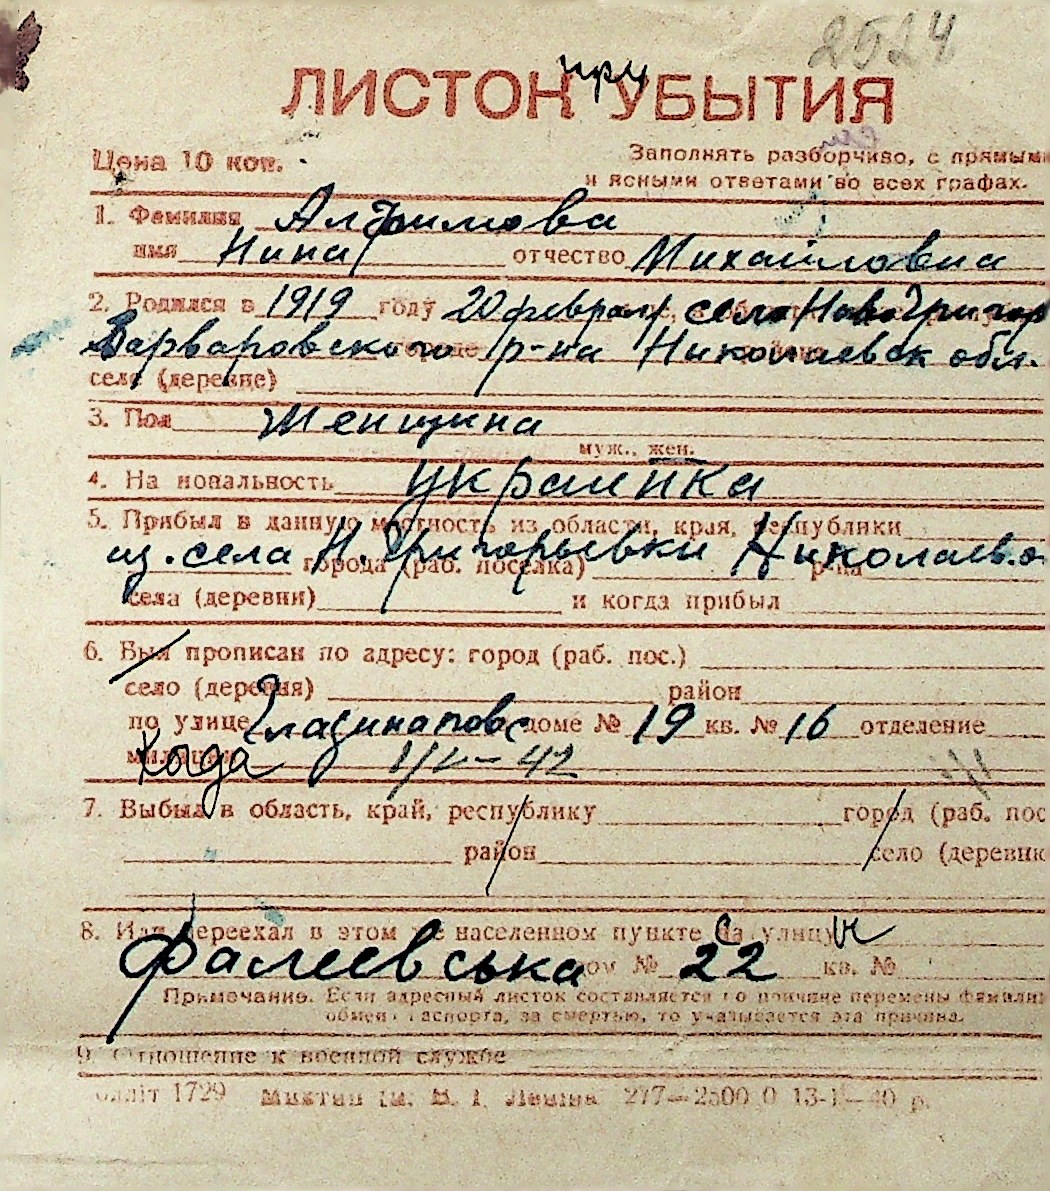 2524
ЛИСТОК при УБЫТИЯ
Цена 10 коп.
Заполнять разборчиво, с прямыми
и ясными ответами во всех графах.
1. Фамилия Алфимова
имя Нина отчество Михайловна
2. Родился в 1919 году 20 февраля село НовоГригор
Варваровского р-на Николаевск обл.
село (деревне)
3. Пол Женщина
муж., жен.
4. Национальность украинка
5. Прибыл в данную местность из области, края, республики
из села Н. Григорьевки Николаев. о
города (раб. поселка) р-на
села (деревни) и когда прибыл
6. Был прописан по адресу: город (раб. пос.)
село (деревня) район
по улице доме № 19 кв. № 16 отделение
милиции Когда 42
7. Выбыл в область, край, республику город (раб. пос
район село (деревню
8. Или переехал в этом же населенном пункте на улицу
Фалеевська дом № 22 кв. №
Примечание. Если адресный листок составляется по причине перемены фамилии
обмен паспорта, за смертью, то указывается эта причина.
9. Отношение к военной службе
1729 В. І. Леніна 277—2500 0 13-I—40 р.